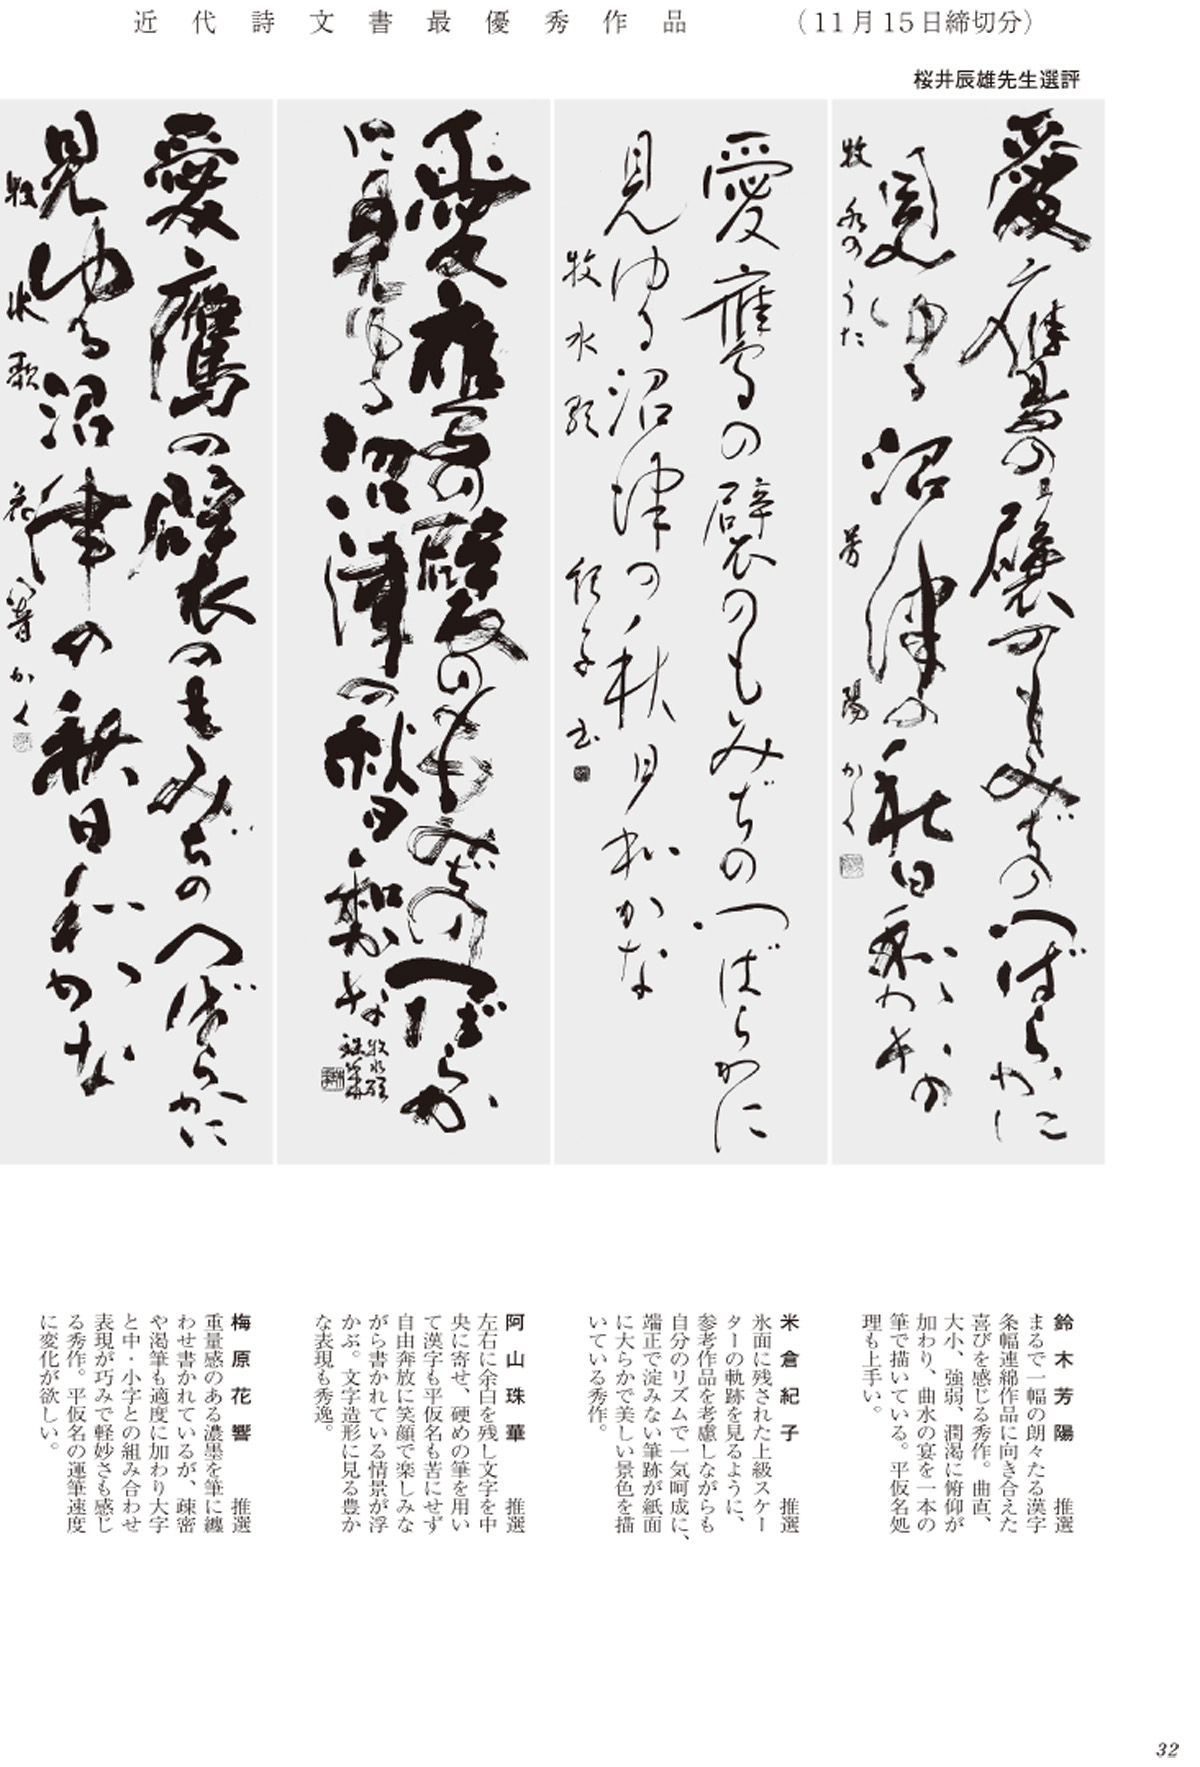 近代詩文書最優秀作品　（11月15日締切分）
桜井辰雄先生選評
愛鷹の襞のもみぢのつばらかに
見ゆる沼津の秋日和かな
牧水のうた　芳陽かく
愛鷹の襞のもみぢのつばらかに
見ゆる沼津の秋日和かな
牧水歌　紀子書
愛鷹の襞のもみぢのつばらか
に見ゆる沼津の秋日和かな
牧水歌
珠華
愛鷹の襞のもみぢのつばらかに
見ゆる沼津の秋日和かな
牧水歌　花響かく
鈴木芳陽　推選
まるで一幅の朗々たる漢字
条幅連綿作品に向き合えた
喜びを感じる秀作。曲直、
大小、強弱、潤渇に俯仰が
加わり、曲水の宴を一本の
筆で描いている。平仮名処
理も上手い。
米倉紀子　推選
氷面に残された上級スケー
ターの軌跡を見るように、
参考作品を考慮しながらも
自分のリズムで一気呵成に、
端正で淀みない筆跡が紙面
に大らかで美しい景色を描
いている秀作。
阿山珠華　推選
左右に余白を残し文字を中
央に寄せ、硬めの筆を用い
て漢字も平仮名も苦にせず
自由奔放に笑顔で楽しみな
がら書かれている情景が浮
かぶ。文字造形に見る豊か
な表現も秀逸。
梅原花響　推選
重量感のある濃墨を筆に纏
わせ書かれているが、疎密
や渇筆も適度に加わり大字
と中・小字との組み合わせ
表現が巧みで軽妙さも感じ
る秀作。平仮名の運筆速度
に変化が欲しい。
32